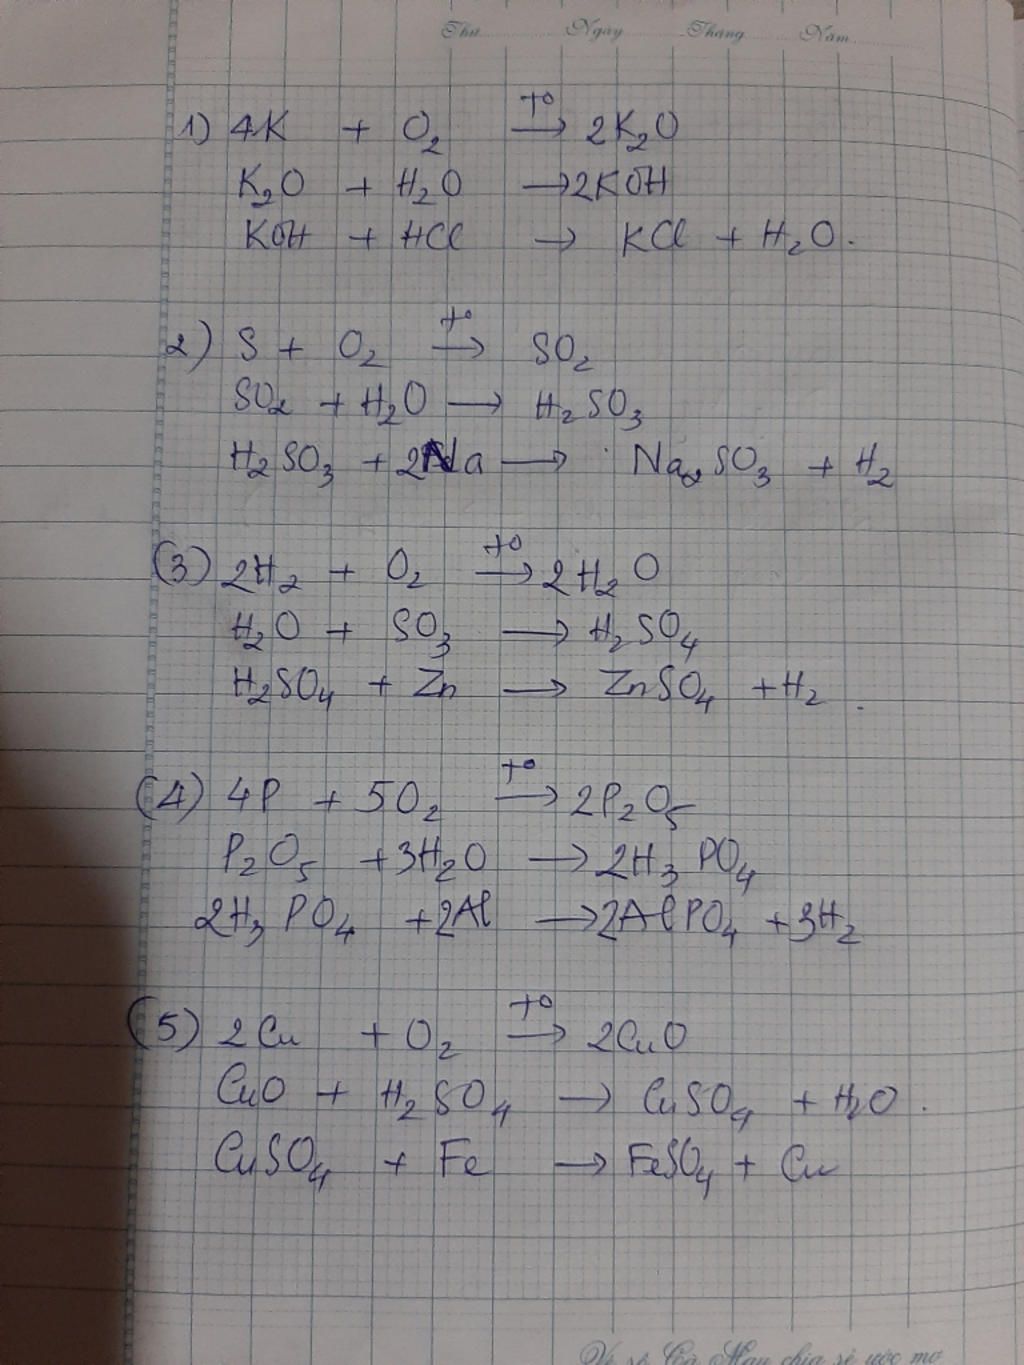 Thứ Ngày Tháng Năm
1) 4K + O₂ t° → 2K₂O
K₂O + H₂O → 2KOH
KOH + HCl → KCl + H₂O.
2) S + O₂ t° → SO₂
SO₂ + H₂O → H₂SO₃
H₂SO₃ + 2Na → Na₂SO₃ + H₂
(3) 2H₂ + O₂ t° → 2H₂O
H₂O + SO₃ → H₂SO₄
H₂SO₄ + Zn → ZnSO₄ + H₂.
(4) 4P + 5O₂ t° → 2P₂O₅
P₂O₅ + 3H₂O → 2H₃PO₄
2H₃PO₄ + 2Al → 2AlPO₄ + 3H₂
(5) 2Cu + O₂ t° → 2CuO
CuO + H₂SO₄ → CuSO₄ + H₂O.
CuSO₄ + Fe → FeSO₄ + Cu
Vở sê Cà Mau chia sẻ ước mơ